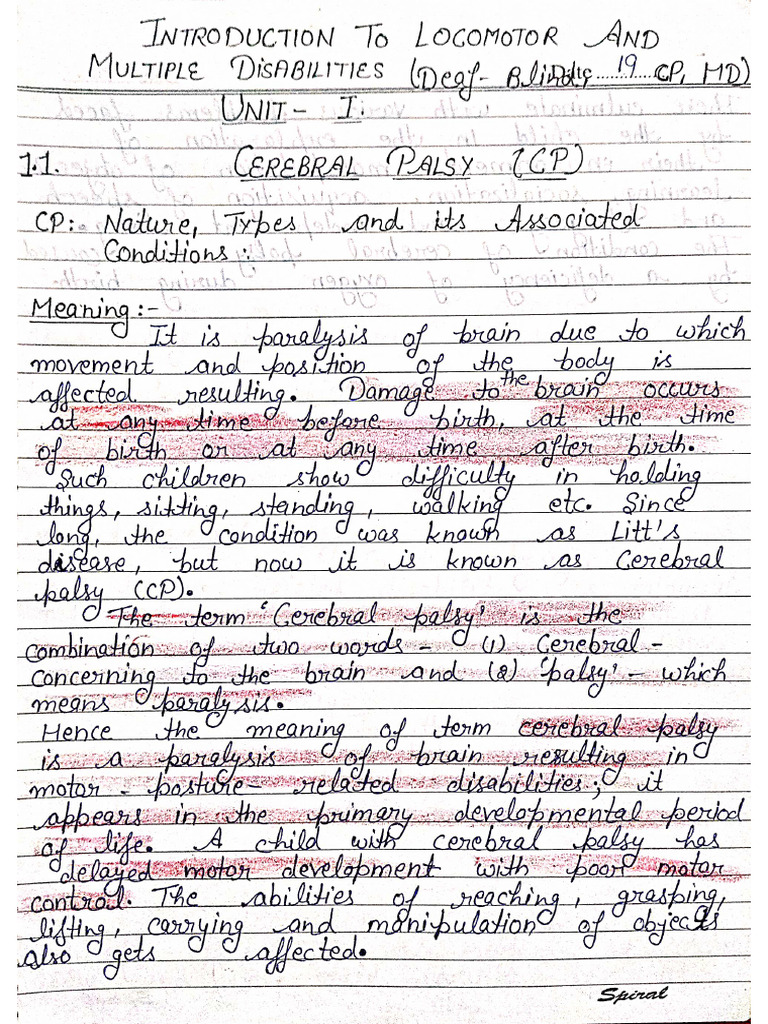 INTRODUCTION TO LOCOMOTOR AND
MULTIPLE DISABILITIES (Deaf-Blind, 19 CP, MD)
UNIT- I.
1.1. CEREBRAL PALSY (CP)
CP: Nature, Types and its Associated
Conditions:
Meaning:-
It is paralysis of brain due to which
movement and position of the body is
affected resulting. Damage to the brain occurs
at any time before birth, at the time
of birth or at any time after birth.
Such children show difficulty in holding
things, sitting, standing, walking etc. Since
long, the condition was known as Litt's
disease, but now it is known as Cerebral
palsy (CP).
The term 'Cerebral palsy' is the
combination of two words- (1) Cerebral-
concerning to the brain and (2) 'palsy'- which
means paralysis.
Hence the meaning of term cerebral palsy
is a paralysis of brain resulting in
motor-posture-related disabilities; it
appears in the primary developmental period
of life. A child with cerebral palsy has
delayed motor development with poor motor
control. The abilities of reaching, grasping,
lifting, carrying and manipulation of objects
also gets affected.
Spiral